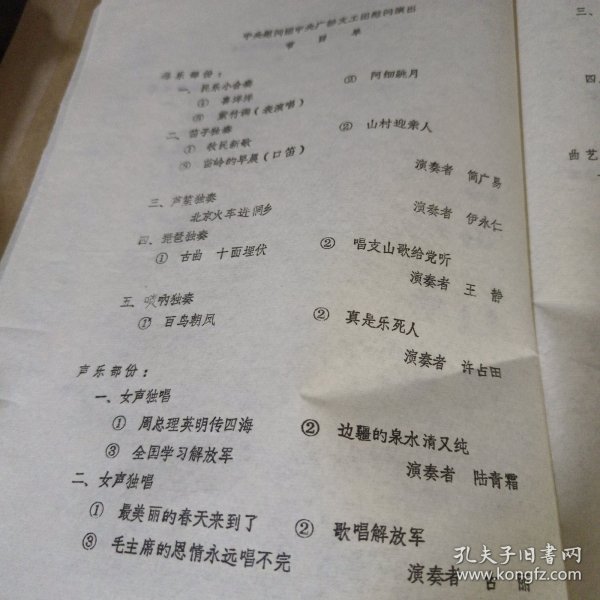 中央慰问团中央广播文工团慰问演出
节目单
器乐部份：
一、民乐小合奏
① 喜洋洋 ② 阿细跳月
③ 紫竹调（表演唱）
二、笛子独奏
① 牧民新歌 ② 山村迎亲人
③ 苗岭的早晨（口笛）
演奏者 简广易
三、芦笙独奏
北京火车进侗乡
演奏者 伊永仁
四、琵琶独奏
① 古曲 十面埋伏 ② 唱支山歌给党听
演奏者 王 静
五、唢呐独奏
① 百鸟朝凤 ② 真是乐死人
演奏者 许占田
声乐部份：
一、女声独唱
① 周总理英明传四海 ② 边疆的泉水清又纯
③ 全国学习解放军
演奏者 陆青霜
二、女声独唱
① 最美丽的春天来到了 ② 歌唱解放军
③ 毛主席的恩情永远唱不完
演奏者
三、
四、
曲艺
孔夫子旧书网
www.kongfz.com